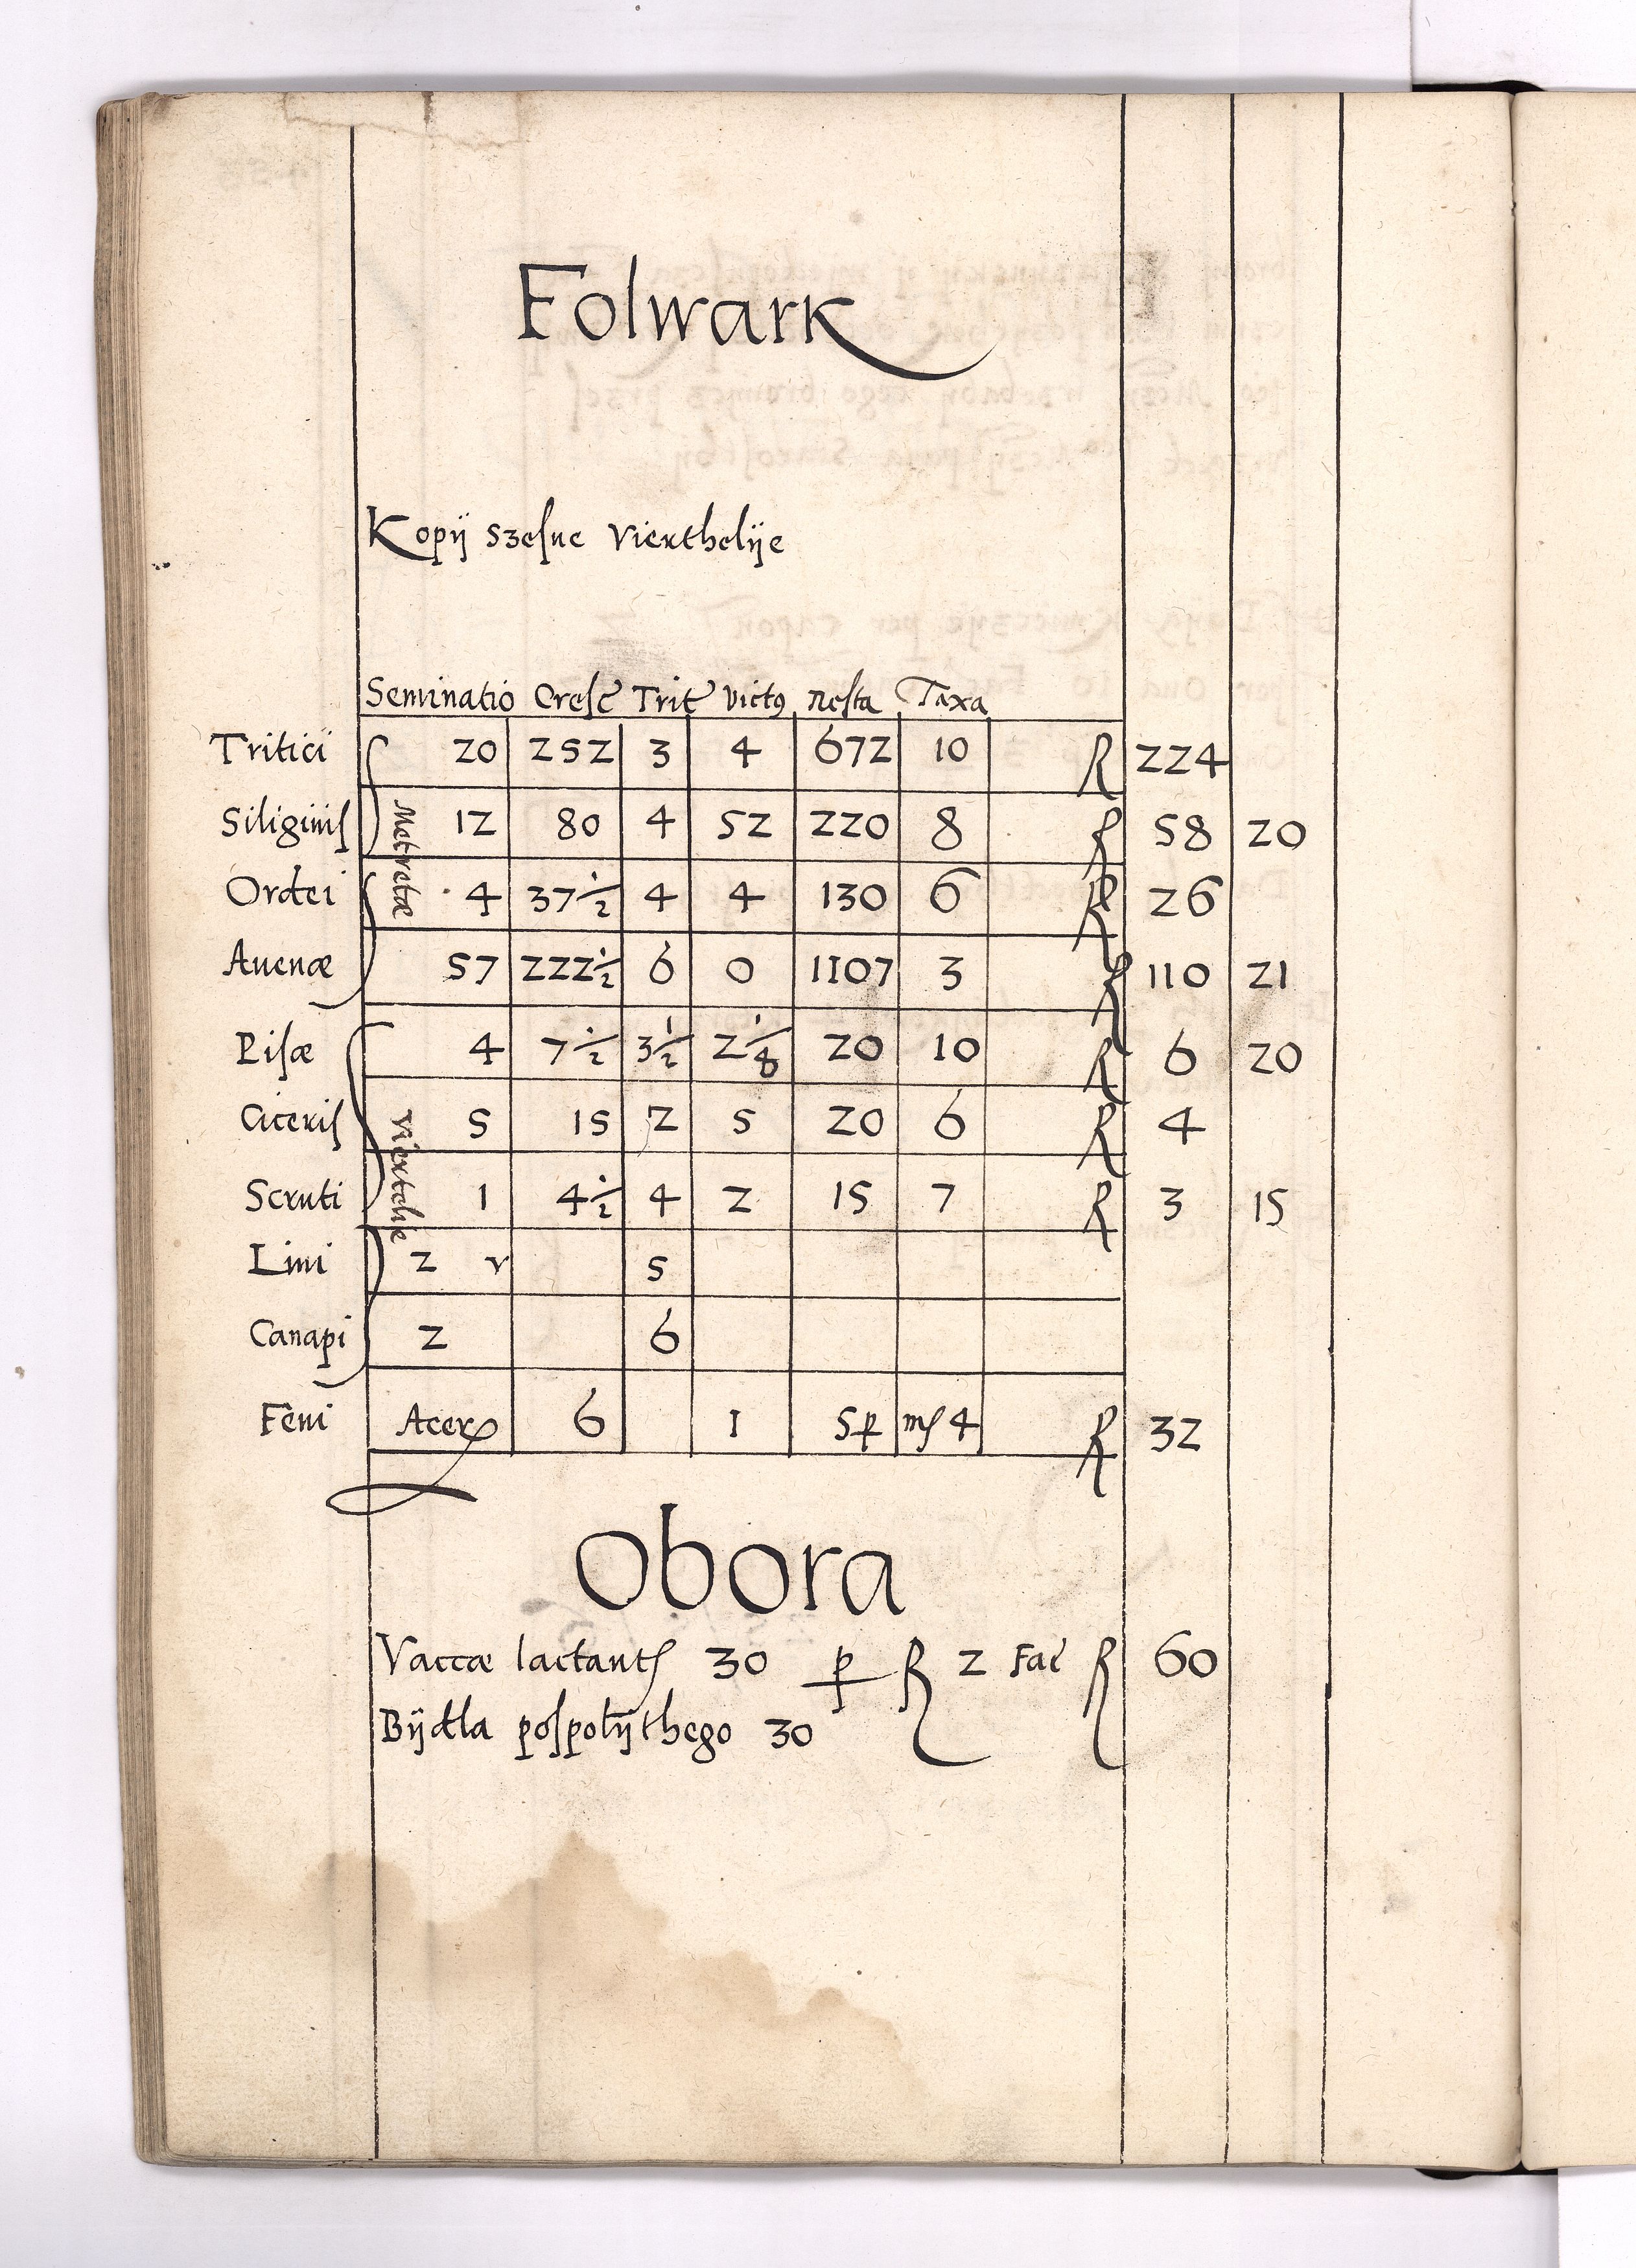 Folwark
Kopÿ szesne vierthelÿe
Seminatio Cresc Trit vict9 Resta Taxa
Tritici 20 252 3 4 672 10 R 224
Siliginis 12 80 4 52 220 8 R 58 20
Matretæ
Ordei 4 37 1/2 4 4 130 6 R 26
Auenæ 57 222 1/2 6 0 1107 3 R 110 21
Pisæ 4 7 1/2 3 1/2 2 1/8 20 10 R 6 20
Ciceris 5 15 2 5 20 6 R 4
Viertelie
Scruti 1 4 1/2 4 2 15 7 R 3 15
Lini 2 v 5
Canapi 2 6
Feni Acer 6 1 5 p ms 4 R 32
Obora
Vaccæ lactants 30 p R 2 Fac R 60
Bÿdla pospolÿthego 30